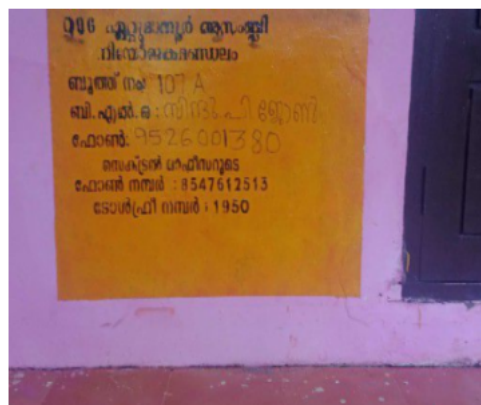 096 ഏറ്റുമാനൂർ ആസംബ്ലി
നിയോജകമണ്ഡലം
ബൂത്ത് നം: 107 A
ബി.എൽ.ഒ : സിന്ധു പി ജോൺ
ഫോൺ: 9526001380
സെക്ട്രൽ ഓഫീസറുടെ
ഫോൺ നമ്പർ : 8547612513
ടോൾഫ്രീ നമ്പർ : 1950